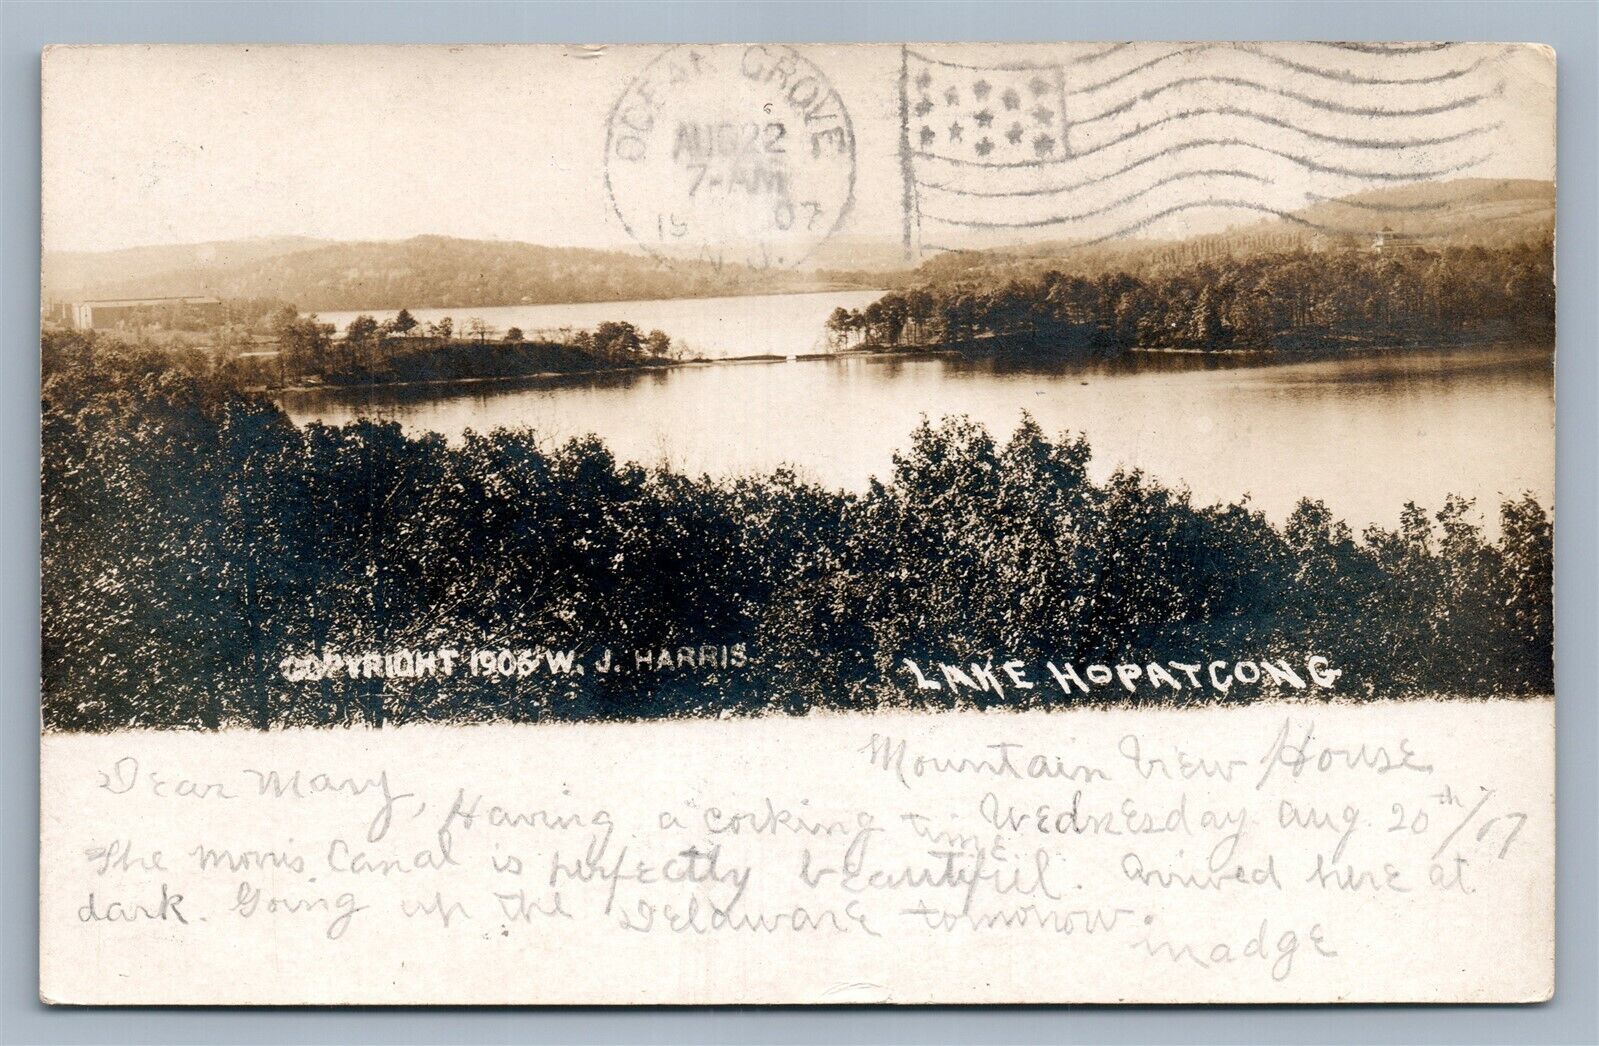 OCEAN GROVE
AUG 22
7-AM
19 07
N.J.
COPYRIGHT 1906 W. J. HARRIS.
LAKE HOPATCONG
Mountain View House
Wednesday Aug. 20th/07
Dear Mary,
Having a corking time
The Morris Canal is perfectly beautiful. Arrived here at
dark. Going up the Delaware tomorrow.
Madge